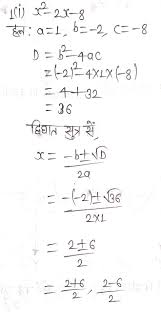 1(i) x²-2x-8
हल: a=1, b=-2, c=-8
D = b²-4ac
=(-2)²-4×1×(-8)
= 4+32
= 36
द्विघात सूत्र से,
x = -b±√D / 2a
= -(-2)±√36 / 2×1
= 2±6 / 2
= 2+6 / 2 , 2-6 / 2